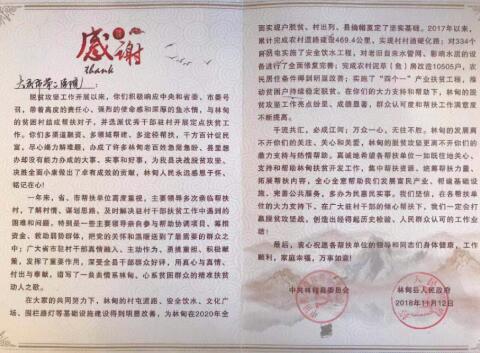 感谢
thank
大庆市第二医院:
脱贫攻坚工作开展以来,你们积极响应中央和省委、市委号
召,带着高度的责任心、强烈的使命感和深厚的鱼水情,与林甸
的贫困村组成帮扶对子,并选派优秀干部驻村开展定点扶贫工
作。你们多渠道融资、多领域帮建、多途径帮扶,千方百计促民
富,尽心竭力解难题,办成了许多林甸老百姓急聚焦盼、县里想
办却没有能力办成的大事、实事和好事,为我县决战脱贫攻坚、
决胜全面小康做出了卓有成效的贡献,林甸人民永远感恩于怀、
铭记在心!
一年来,省、市帮扶单位高度重视,主要领导多次亲临帮扶
村,了解村情、谋划思路,及时解决驻村干部扶贫工作中遇到的
困难和问题,特别是一些主要领导亲自参与帮助协调项目、筹措
资金、救助弱势群体,把党的关怀和温暖送到了最需要的群众之
中;广大省市驻村干部真情融入、主动作为、勇挑重担、积极献
策,发挥了重要作用,深受全县干部群众好评,用真心与真情、
付出与奉献,谱写了一曲曲情系林甸、心系贫困群众的精准扶贫
动人之歌。
在大家的共同努力下,林甸的村屯道路、安全饮水、文化广
场、围栏路灯等基础设施建设得到明显改善,为林甸在2020年全
面实现户脱贫、村出列、县摘帽奠定了坚实基础。2017年以来,
累计完成农村道路建设469.4公里,实现村村通硬化路;对334个
自然屯实施了安全饮水工程,对老旧自来水管网、影响水质的设
备进行了全面修复完善;完成农村泥草(危)房改造10505户,农
民居住条件得到明显改善;实施了“四个一”产业扶贫工程,推动
贫困户持续稳定脱贫。在你们的大力支持和帮助下,林甸的脱贫
攻坚工作亮点纷呈、成绩显著,群众认可度和帮扶工作满意度不
断提高。
千流共汇,必成江河;万众一心,无往不胜。林甸的发展离
不开你们的关注、关心和关爱,林甸的脱贫攻坚更离不开你们的
鼎力支持与热情帮助。真诚地希望各帮扶单位一如既往地关心、
支持和帮助林甸扶贫开发工作,集中帮扶资源,统筹帮扶力量、
拓展帮扶内容,全心全意帮助我们发展富民产业、帮建基础设
施、完善公共服务,多办为民惠民实事。我们坚信,在各帮扶单
位的大力支持下,在广大驻村干部的倾心帮扶下,我们一定会打
赢脱贫攻坚战,创造出经得起历史检验、人民群众认可的工作业
绩!
最后,衷心祝愿各帮扶单位的领导和同志们身体健康,工作
顺利,家庭幸福,万事如意!
中共林甸县委员会 林甸县人民政府
2018年11月12日